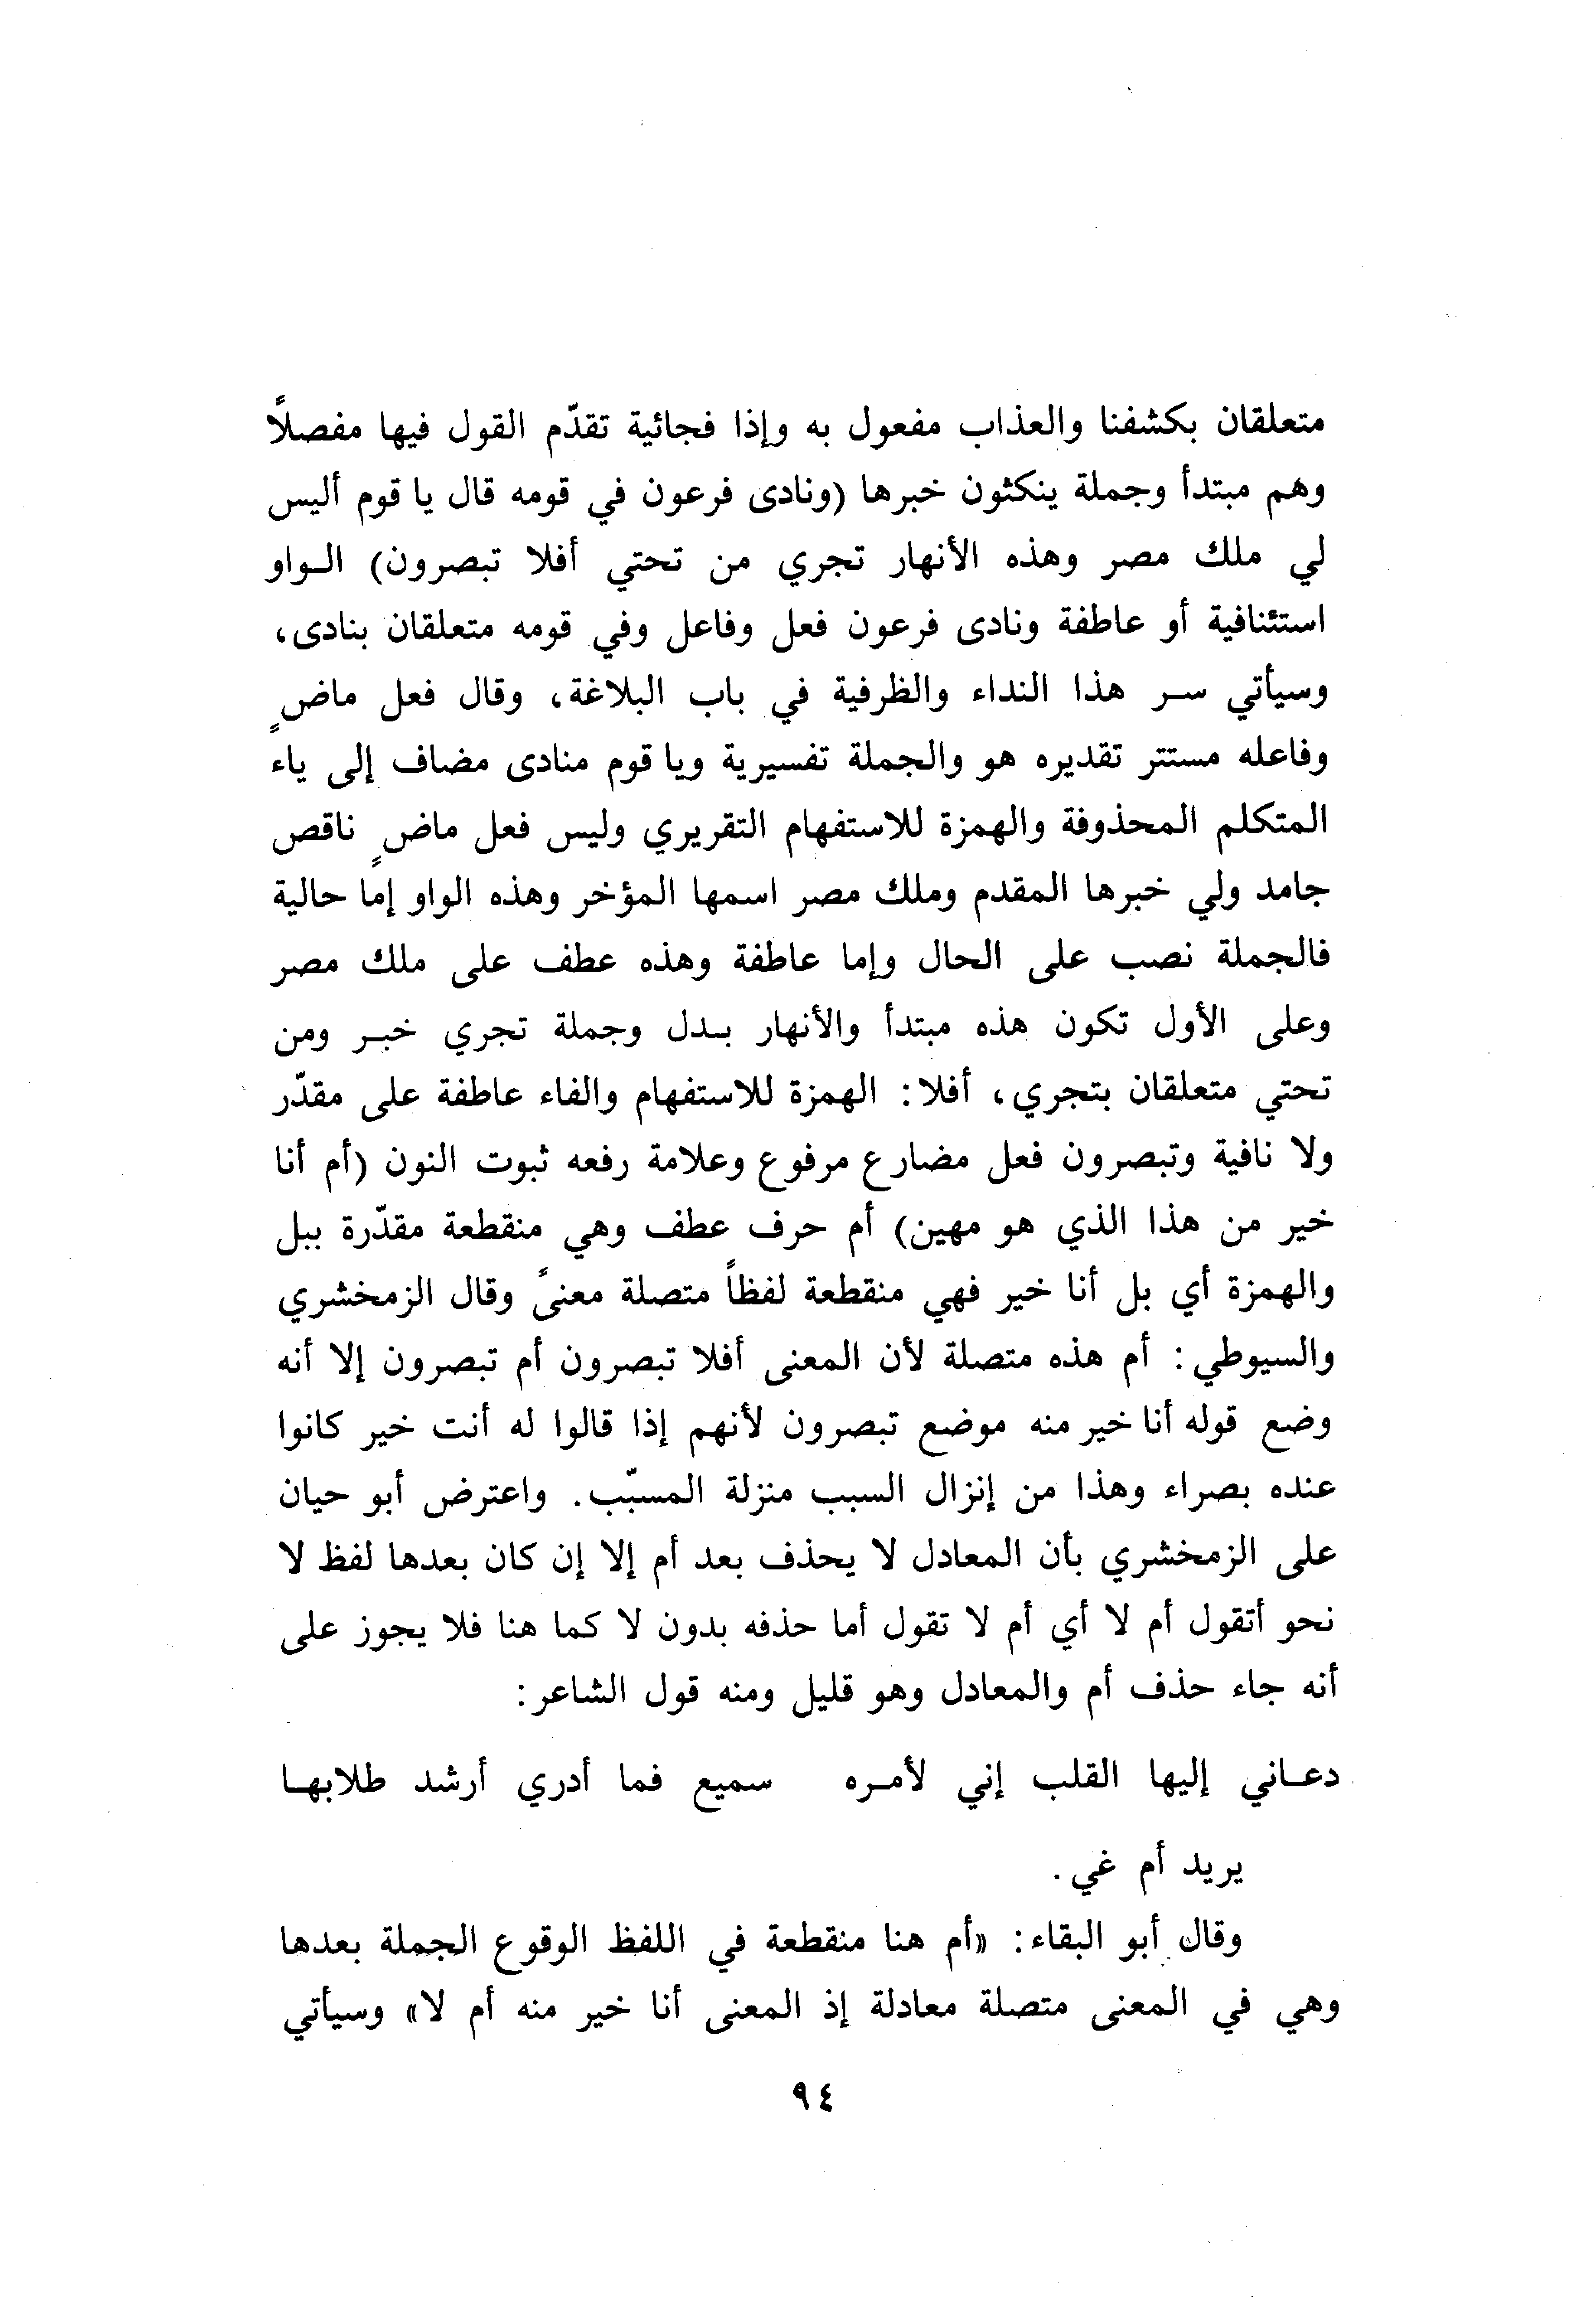 متعلقان بكشفنا والعذاب مفعول به وإذا فجائية تقدّم القول فيها مفصلاً
وهم مبتدأ وجملة ينكثون خبرها (ونادى فرعون في قومه قال يا قوم أليس
لي ملك مصر وهذه الأنهار تجري من تحتي أفلا تبصرون) الـواو
استئنافية أو عاطفة ونادى فرعون فعل وفاعل وفي قومه متعلقان بنادى،
وسيأتي سـر هذا النداء والظرفية في باب البلاغة، وقال فعل ماضٍ
وفاعله مستتر تقديره هو والجملة تفسيرية ويا قوم منادى مضاف إلى ياء
المتكلم المحذوفة والهمزة للاستفهام التقريري وليس فعل ماضٍ ناقص
جامد ولي خبرها المقدم وملك مصر اسمها المؤخر وهذه الواو إما حالية
فالجملة نصب على الحال وإما عاطفة وهذه عطف على ملك مصر
وعلى الأول تكون هذه مبتدأ والأنهار بـدل وجملة تجري خبـر ومن
تحتي متعلقان بتجري، أفلا: الهمزة للاستفهام والفاء عاطفة على مقدّر
ولا نافية وتبصرون فعل مضارع مرفوع وعلامة رفعه ثبوت النون (أم أنا
خير من هذا الذي هو مهين) أم حرف عطف وهي منقطعة مقدّرة ببل
والهمزة أي بل أنا خير فهي منقطعة لفظاً متصلة معنىً وقال الزمخشري
والسيوطي: أم هذه متصلة لأن المعنى أفلا تبصرون أم تبصرون إلا أنه
وضع قوله أنا خير منه موضع تبصرون لأنهم إذا قالوا له أنت خير كانوا
عنده بصراء وهذا من إنزال السبب منزلة المسبّب. واعترض أبو حيان
على الزمخشري بأن المعادل لا يحذف بعد أم إلا إن كان بعدها لفظ لا
نحو أتقول أم لا أي أم لا تقول أما حذفه بدون لا كما هنا فلا يجوز على
أنه جاء حذف أم والمعادل وهو قليل ومنه قول الشاعر:
دعـاني إليها القلب إني لأمـره سميع فما أدري أرشد طلابهـا
يريد أم غي.
وقال أبو البقاء: «أم هنا منقطعة في اللفظ الوقوع الجملة بعدها
وهي في المعنى متصلة معادلة إذ المعنى أنا خير منه أم لا» وسيأتي
٩٤